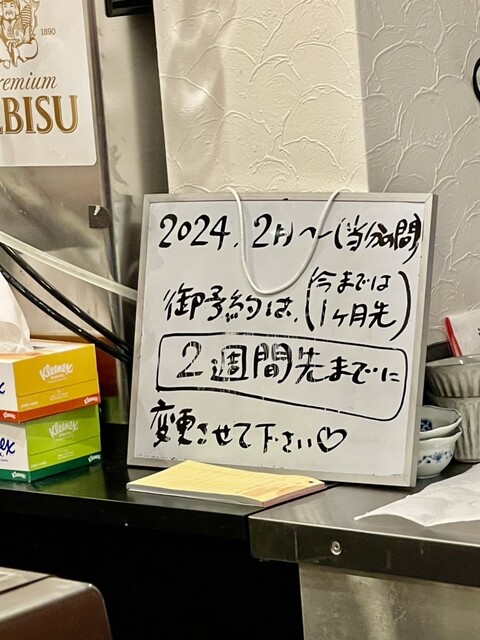 1890
remium
EBISU
2024.2月〜(当分の間)
御予約は、(今までは
1ヶ月先)
2週間先までに
変更させて下さい♡
Kleenex
Kleenex